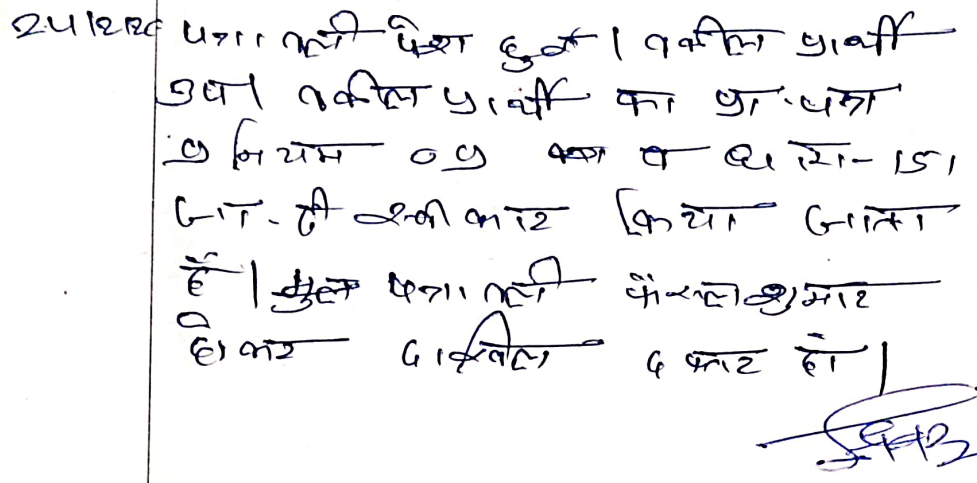 24/2/26 पत्रावली पेश हुई। वकील प्रार्थी
उप। वकील प्रार्थी का प्रा. पत्र
9 नियम 09 व धारा-151
जा. दी स्वीकार किया जाता
है। पत्रावली फैसलशुमार
होकर दाखिल दफ्तर हो।